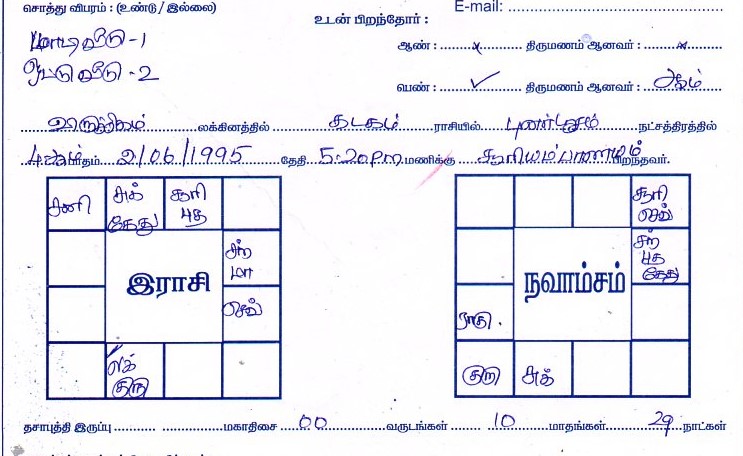 சொத்து விபரம் : (உண்டு / இல்லை)
E-mail:
உடன் பிறந்தோர் :
மாடிவீடு -1
ஓட்டுவீடு - 2
ஆண் : x திருமணம் ஆனவர் : x
பெண் : ✓ திருமணம் ஆனவர் :
லக்கினத்தில் கடகம் ராசியில் புனர்பூசம் நட்சத்திரத்தில்
4ஆம் பாதம் 2/06/1995 தேதி 5.20pm மணிக்கு சூரியம்பாளையம் பிறந்தவர்.
சனி சுக் கேது சூரி புத
சந் மா
செவ்
இராசி
லக் குரு
சூரி செவ்
சந் புத கேது
நவாம்சம்
ராகு
குரு சுக்
தசாபுத்தி இருப்பு மகாதிசை 00 வருடங்கள் 10 மாதங்கள் 29 நாட்கள்